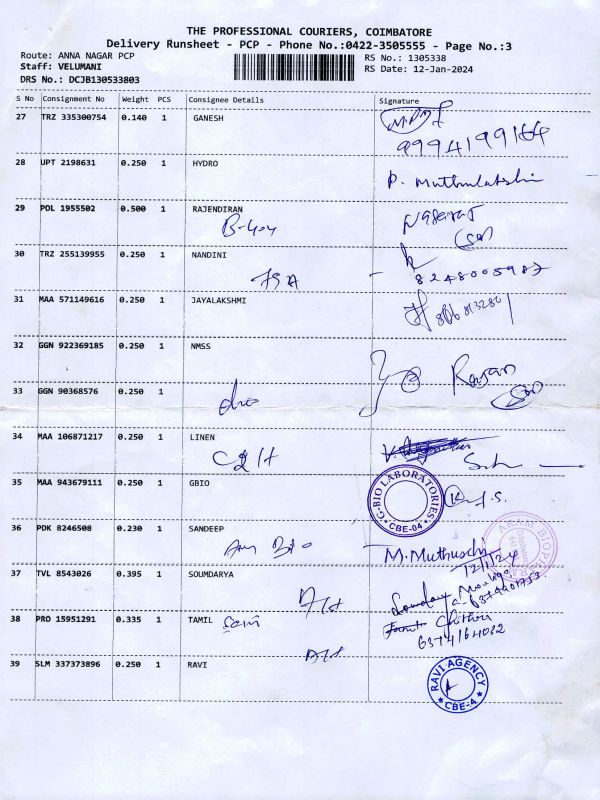 THE PROFESSIONAL COURIERS, COIMBATORE
Delivery Runsheet - PCP - Phone No.:0422-3505555 - Page No.:3
Route: ANNA NAGAR PCP
Staff: VELUMANI
DRS No.: DCJB130533803
RS No.: 1305338
RS Date: 12-Jan-2024
S No Consignment No Weight PCS Consignee Details Signature
27 TRZ 335300754 0.140 1 GANESH
9994199164
28 UPT 2198631 0.250 1 HYDRO
P. Muthulakshi
29 POL 1955502 0.500 1 RAJENDIRAN
B-404
30 TRZ 255139955 0.250 1 NANDINI
8248005987
31 MAA 571149616 0.250 1 JAYALAKSHMI
32 GGN 922369185 0.250 1 NMSS
33 GGN 90368576 0.250 1
34 MAA 106871217 0.250 1 LINEN
35 MAA 943679111 0.250 1 GBIO
G-BIO LABORATORIES
CBE-04
36 PDK 8246508 0.230 1 SANDEEP
M. Muthuschi
12/1/24
37 TVL 8543026 0.395 1 SOUMDARYA
38 PRO 15951291 0.335 1 TAMIL
Chithra
6374164082
39 SLM 337373896 0.250 1 RAVI
RAVI AGENCY
CBE-4